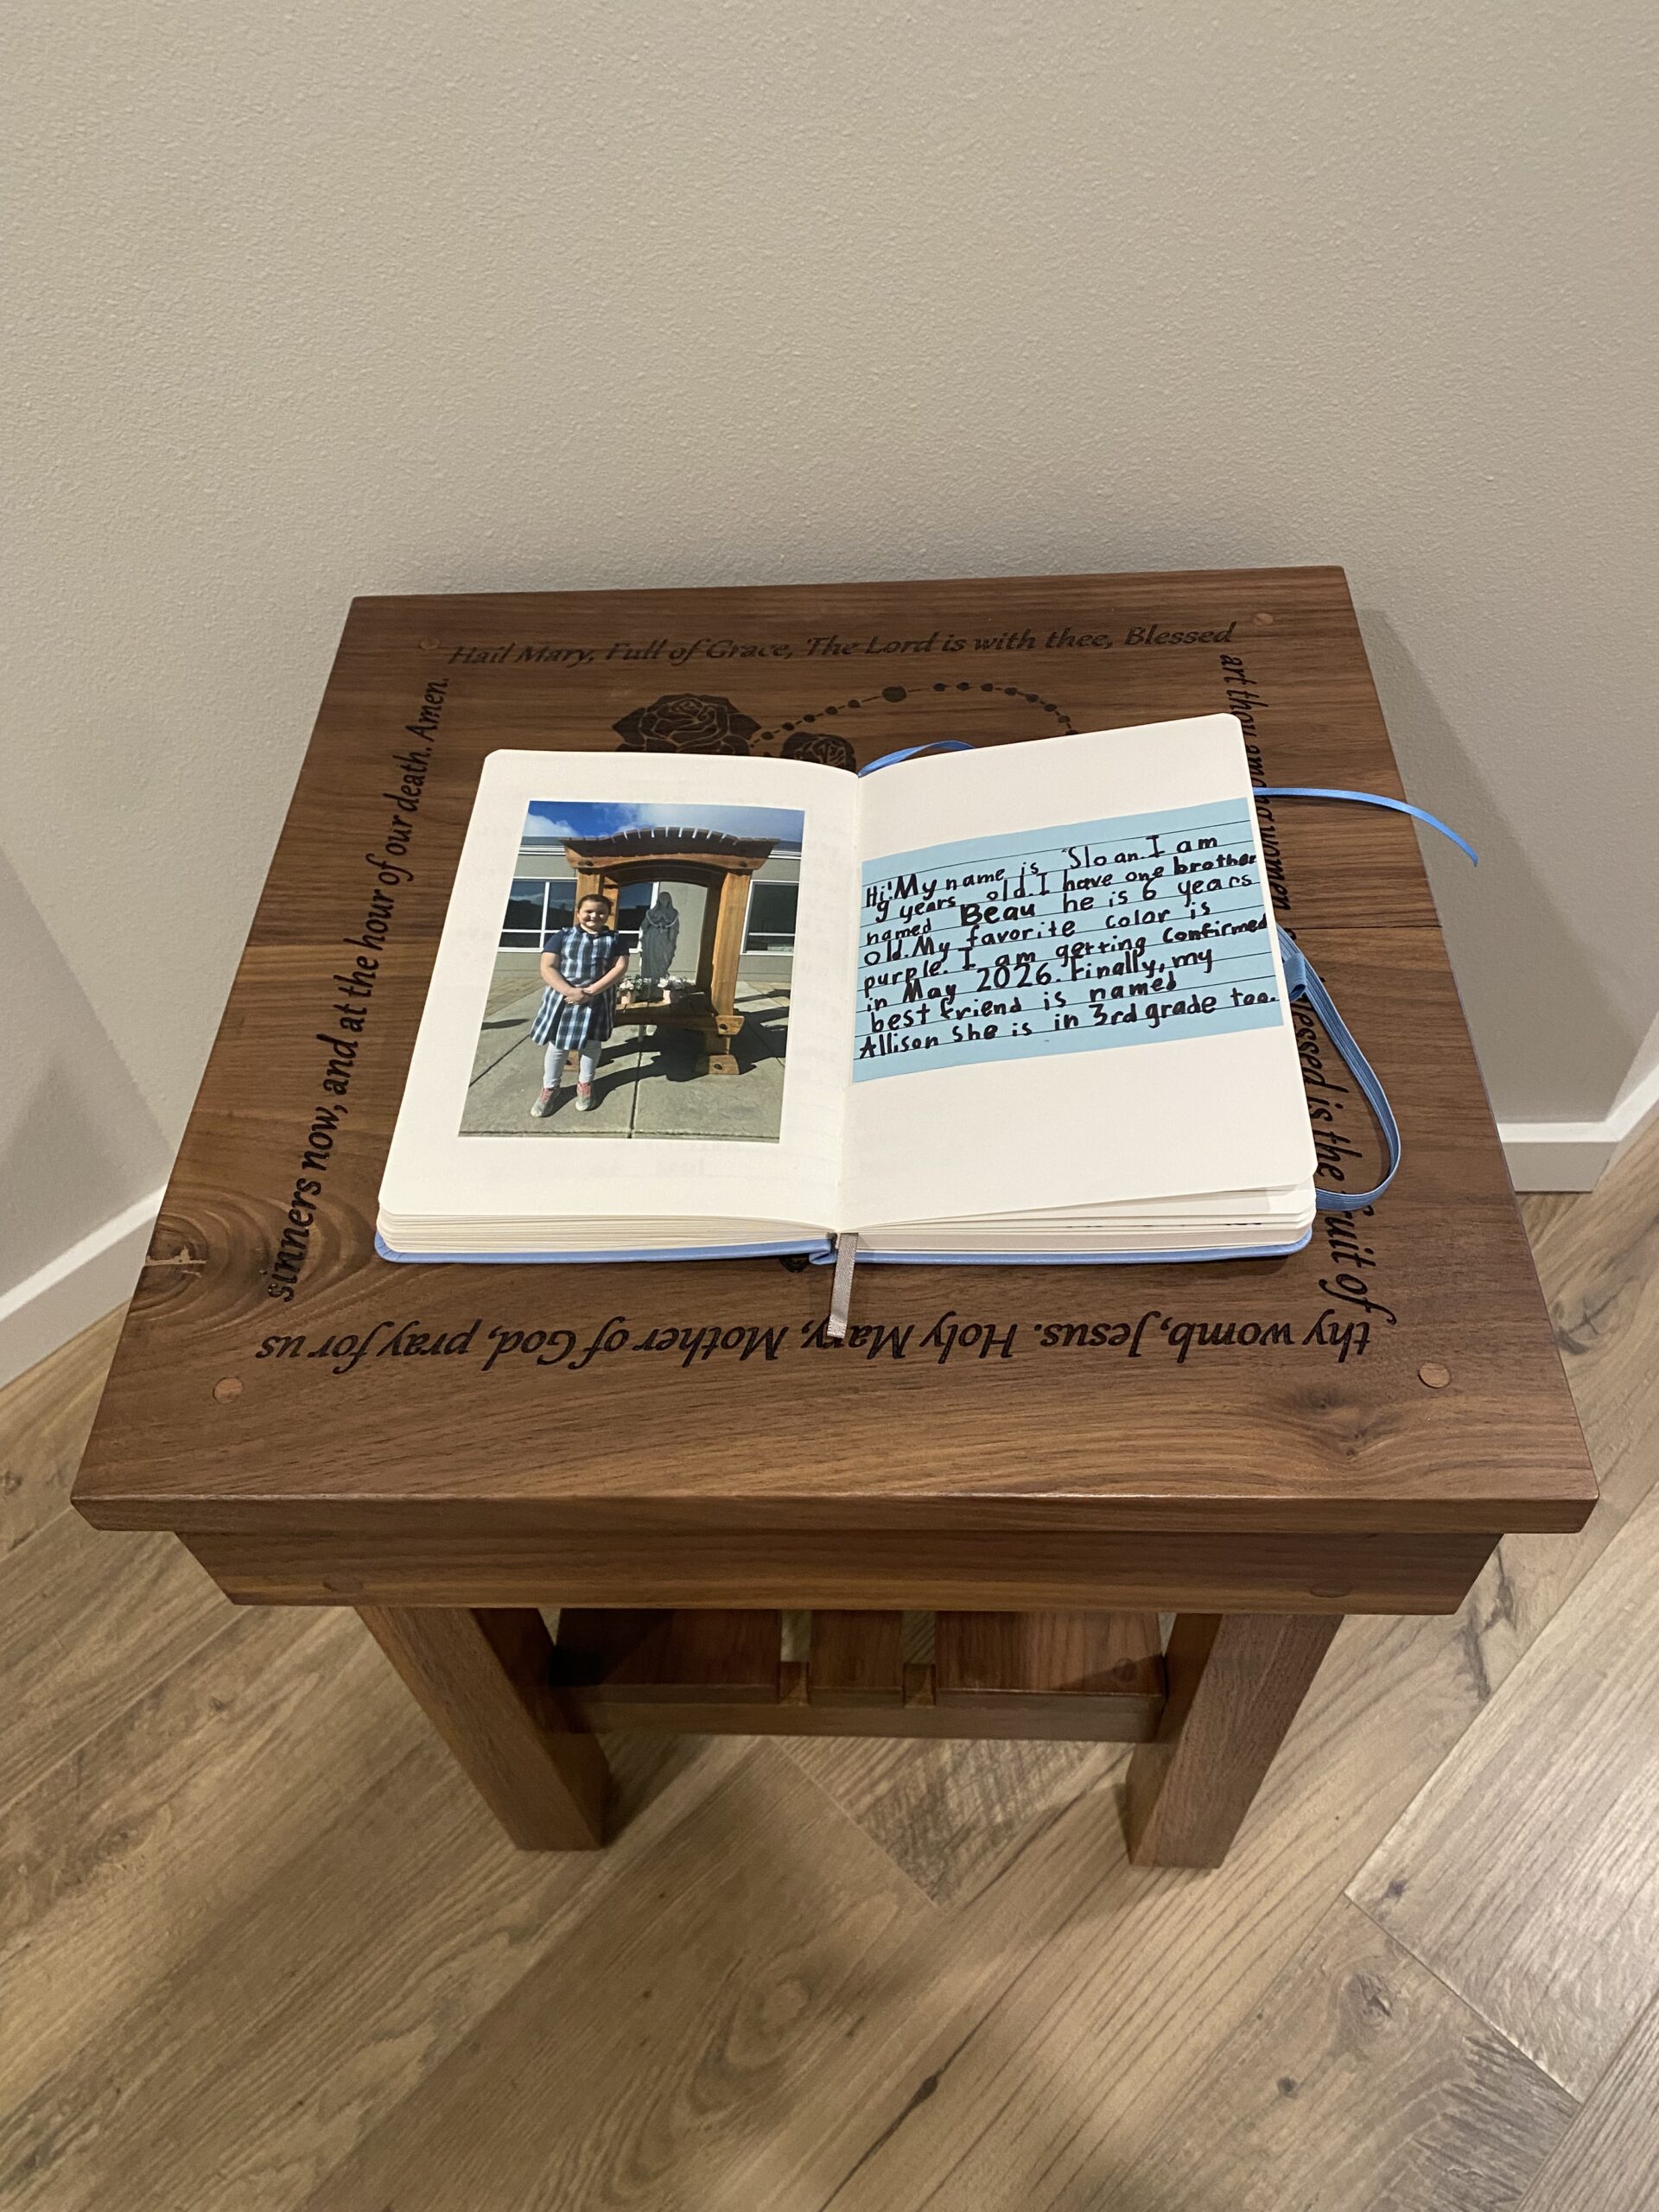 Hail Mary, Full of Grace, The Lord is with thee, Blessed
art thou among women
Blessed is the fruit of
thy womb, Jesus. Holy Mary, Mother of God, pray for us
sinners now, and at the hour of our death. Amen.
Hi! My name is Sloan. I am
9 years old. I have one brother
named Beau he is 6 years
old. My favorite color is
purple. I am getting confirmed
in May 2026. Finally, my
best friend is named
Allison She is in 3rd grade too.